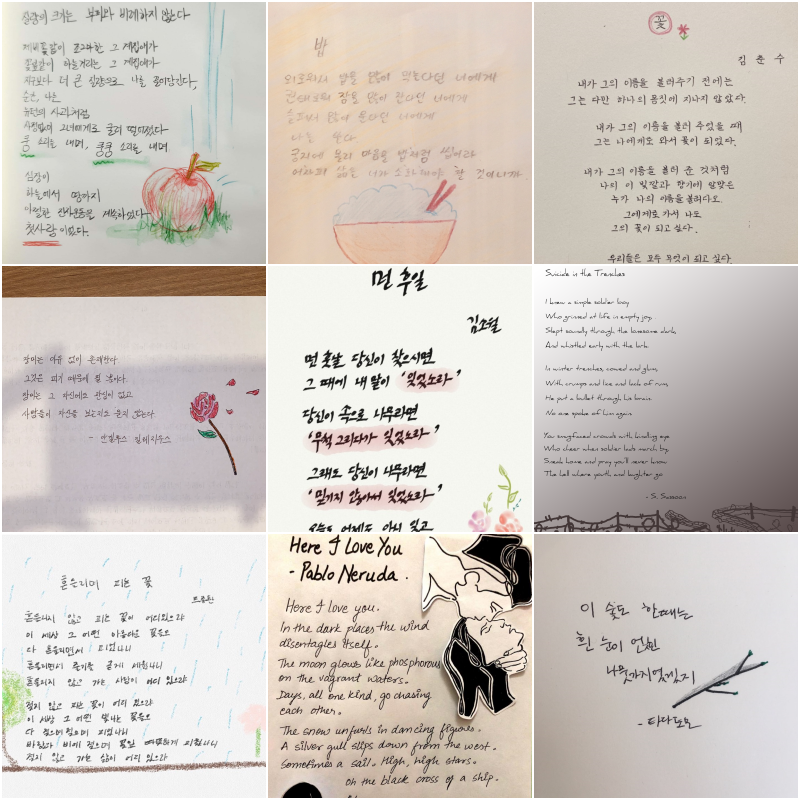 질량의 크기는 부피와 비례하지 않는다
제비꽃같이 조그마한 그 계집애가
꽃잎같이 하늘거리는 그 계집애가
지구보다 더 큰 질량으로 나를 끌어당긴다,
순간, 나는
뉴턴의 사과처럼
사정없이 그녀에게로 굴러 떨어졌다
쿵 소리를 내며, 쿵쿵 소리를 내며
심장이
하늘에서 땅까지
아찔한 진자운동을 계속하였다
첫사랑이었다.
밥
외로워서 밥을 많이 먹는다던 너에게
권태로워 잠을 많이 잔다던 너에게
슬퍼서 많이 운다던 너에게
나는 쓴다.
궁지에 몰린 마음을 밥처럼 씹어라.
어차피 삶은 너가 소화해야 할 것이니까.
꽃
김춘수
내가 그의 이름을 불러주기 전에는
그는 다만 하나의 몸짓에 지나지 않았다.
내가 그의 이름을 불러 주었을 때
그는 나에게로 와서 꽃이 되었다.
내가 그의 이름을 불러 준 것처럼
나의 이 빛깔과 향기에 알맞은
누가 나의 이름을 불러다오.
그에게로 가서 나도
그의 꽃이 되고 싶다.
우리들은 모두 무엇이 되고 싶다.
장미는 이유 없이 존재한다.
그것은 피기 때문에 필 뿐이다.
장미는 그 자신에도 관심이 없고
사람들이 자신을 보는지도 묻지 않는다.
- 안겔루스 질레지우스
먼 후일
김소월
먼 훗날 당신이 찾으시면
그 때에 내 말이 '잊었노라'
당신이 속으로 나무라면
'무척 그리다가 잊었노라'
그래도 당신이 나무라면
'믿기지 않아서 잊었노라'
오늘도 어제도 아니 잊고
Suicide in the Trenches
I knew a simple soldier boy
Who grinned at life in empty joy,
Slept soundly through the lonesome dark,
And whistled early with the lark.
In winter trenches, cowed and glum,
With crumps and lice and lack of rum,
He put a bullet through his brain.
No one spoke of him again.
You smugfaced crowds with kindling eye
Who cheer when soldier lads march by,
Sneak home and pray you'll never know
The hell where youth and laughter go.
- S. Sassoon
흔들리며 피는 꽃
도종환
흔들리지 않고 피는 꽃이 어디있으랴
이 세상 그 어떤 아름다운 꽃들도
다 흔들리면서 피었나니
흔들리면서 줄기를 곧게 세웠나니
흔들리지 않고 가는 사랑이 어디 있으랴
젖지 않고 피는 꽃이 어디 있으랴
이 세상 그 어떤 빛나는 꽃들도
다 젖으며젖으며 피었나니
바람과 비에 젖으며 꽃잎 따뜻하게 피웠나니
젖지 않고 가는 삶이 어디 있으랴
Here I Love You
- Pablo Neruda.
Here I love you.
In the dark places the wind
disentagles itself.
The moon glows like phosphorous
on the vagrant waters.
Days, all one kind, go chasing
each other.
The snow unfurls in dancing figures.
A silver gull slips down from the west.
Sometimes a sail. High, high stars.
Oh the black cross of a ship.
이 숯도 한때는
흰 눈이 얹힌
나뭇가지였겠지
- 타다토모